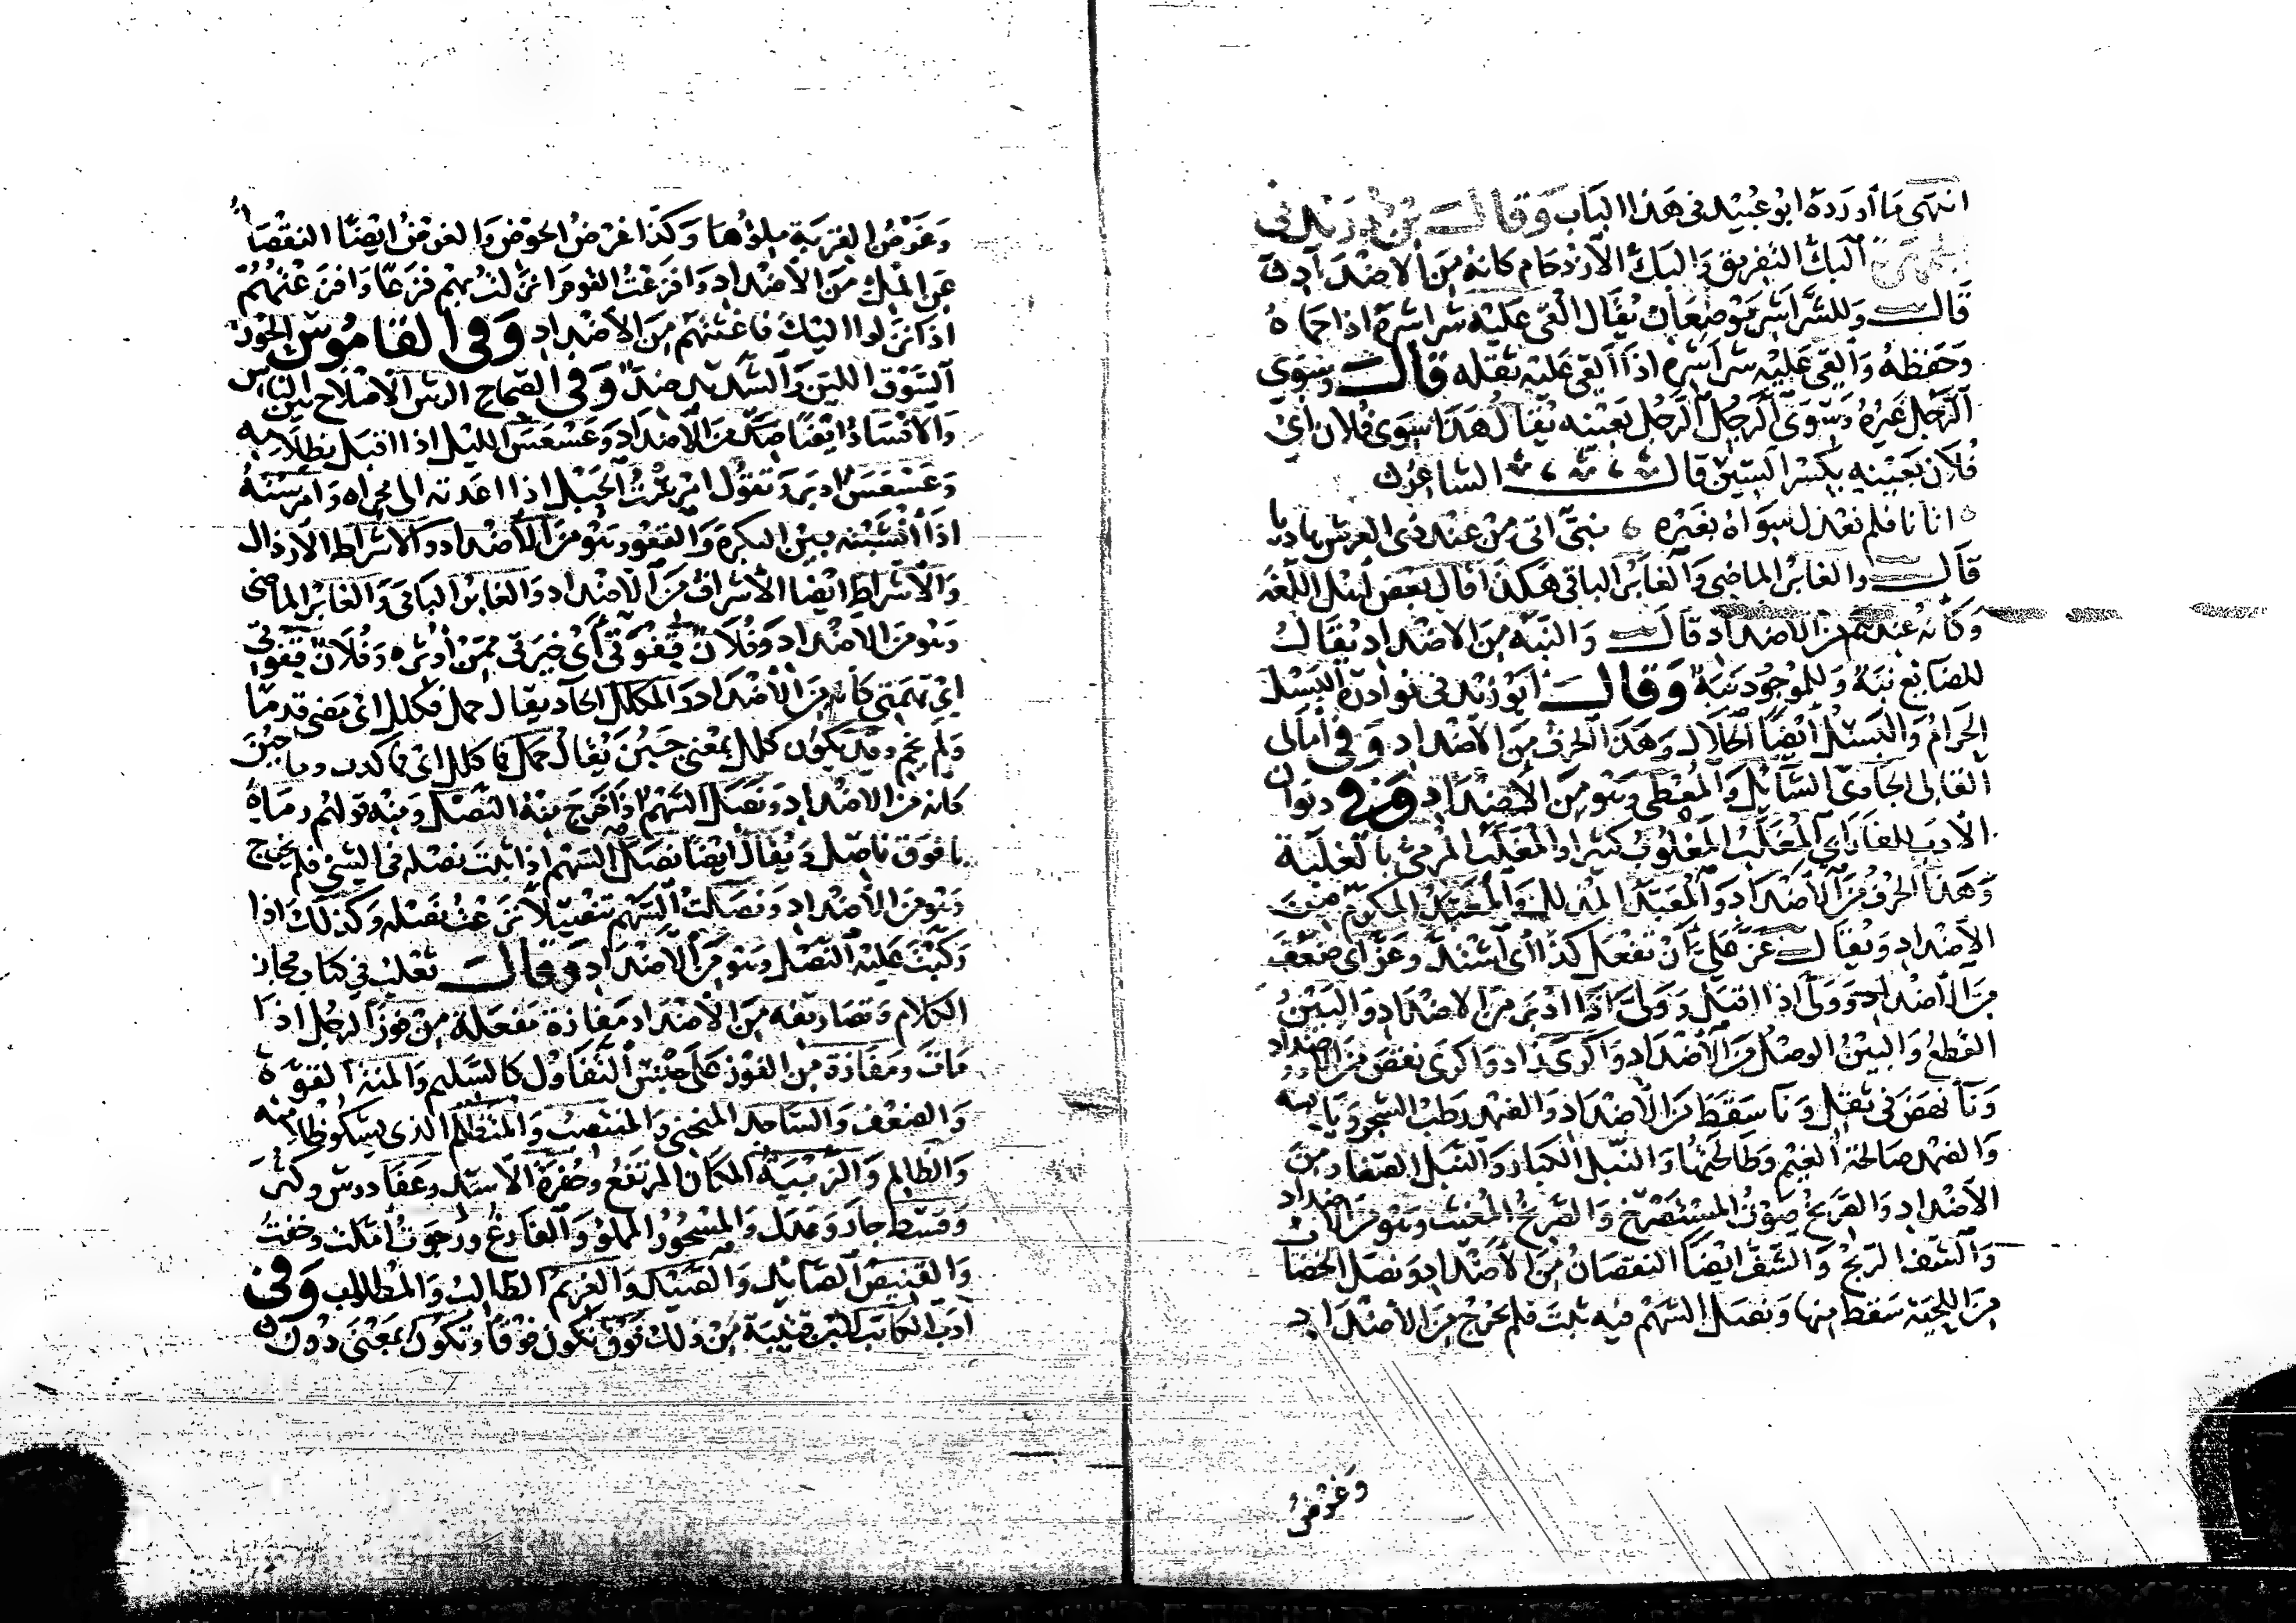 انتهى ما أورده ابو عبيد فى هذا الباب وقال بن دريد فى
الجمهرة البك التفريق والبك الازدحام كانه من الاضداد
قال وللشراشر موضعان يقال القى عليه شراشره اذا حماه
وحفظه والقى عليه شراشره اذا القى عليه ثقله قال وسوى
الرجل غيره وسوى الرجل الرجل بعينه يقال هذا سوى فلان اى
فلان بعينه بكسر السين قال الشاعر
اتانا فلم نعدل سواه بغيره نبى اتى من عند ذى العرش هاديا
قال والغابر الماضى والغابر الباقى هكذا قال بعض اهل اللغة
وكأنه عندهم من الاضداد قال والنبه من الاضداد يقال
للضائع نبه وللموجود نبه وقال ابو زيد فى نوادره البسل
الحرام والبسل ايضا الحلال وهذا الحرف من الاضداد وفى أمالى
القالى الجادى السائل والمعطى وهو من الاضداد وفى ديوان
الادب للفارابى المغلب المغلوب كثيرا والمغلب المرمى بالغلبة
وهذا الحرف من الاضداد والمعبد المذلل والمعبد المكرم من
الاضداد ويقال عز على أن تفعل كذا اى اشتد وعز اى ضعف
من الاضداد وولى اذا اقبل وولى اذا ادبر من الاضداد والبين
القطع والبين الوصل من الاضداد واكرى زاد واكرى نقص من الاضداد
وناء نهض فى ثقل وناء سقط من الاضداد والفهد رطب الشجر ويابسه
والفهد صالحة الغنم وطالحتها والنبل الكبار والنبل الصغار من
الاضداد والصريخ صوت المستصرخ والصريخ المغيث وهو من الاضداد
والشف الربح والشف ايضا النقصان من الاضداد ونصل الخضاب
من اللحية سقط منها ونصل السهم فيه ثبت فلم يخرج من الاضداد
وغرض
وغرض القربة ملؤها وكذا غرض الحوض والغرض ايضا النقصان
عن الملء من الاضداد وافزعت القوم انزلت بهم فزعا وافزعتهم
اذا نزلوا اليك فاغثتهم من الاضداد وفى القاموس الحوذ
السوق اللين والشديد ضد وفى الصحاح الرس الاصلاح بين الناس
والافساد ايضا ضد من الاضداد وعسعس الليل اذا اقبل بظلامه
وعسعس ادبر وتقول امرست الحبل اذا اعدته الى مجراه وامرسته
اذا انشبته بين البكرة والقعو وهو من الاضداد والاشراط الارذال
والاشراط ايضا الاشراف من الاضداد والغابر الباقى والغابر الماضى
وهو من الاضداد وفلان قفوتى أى خيرتى ممن اوثره وفلان قفوتى
اى تهمتى كانه من الاضداد والمكلل الجاد يقال حمل فكلل اى مضى قدما
ولم يخم وقد يكون كلل بمعنى جبن يقال حمل فما كلل اى فما كذب وما جبن
كانه من الاضداد ونصل السهم اذا خرج منه النصل ومنه قولهم رماه
بافوق ناصل ويقال ايضا نصل السهم اذا ثبت نصله فى الشئ فلم يخرج
وهو من الاضداد ونصلت السهم تنصيلا نزعت نصله وكذلك اذا
ركبت عليه النصل وهو من الاضداد وقال ثعلب فى كتاب مجاز
الكلام وتصاريفه من الاضداد مفازة مفعلة من فوز الرجل اذا
مات ومفازة من الفوز على جنس التفاؤل كالسليم والمنة القوة
والضعف والساجد المنحنى والمنتصب والمتظلم الذى يشكو ظلامته
والظالم والزبية المكان المرتفع وحفرة الاسد وعفا درس وكثر
وقسط جار وعدل والمسجور المملوء والفارغ ورجوت أملت وخفت
والقنيص الصائد والصيد والغريم الطالب والمطلوب وفى
ادب الكاتب لابن قتيبة من ذلك فوق تكون فوقا وتكون بمعنى دون